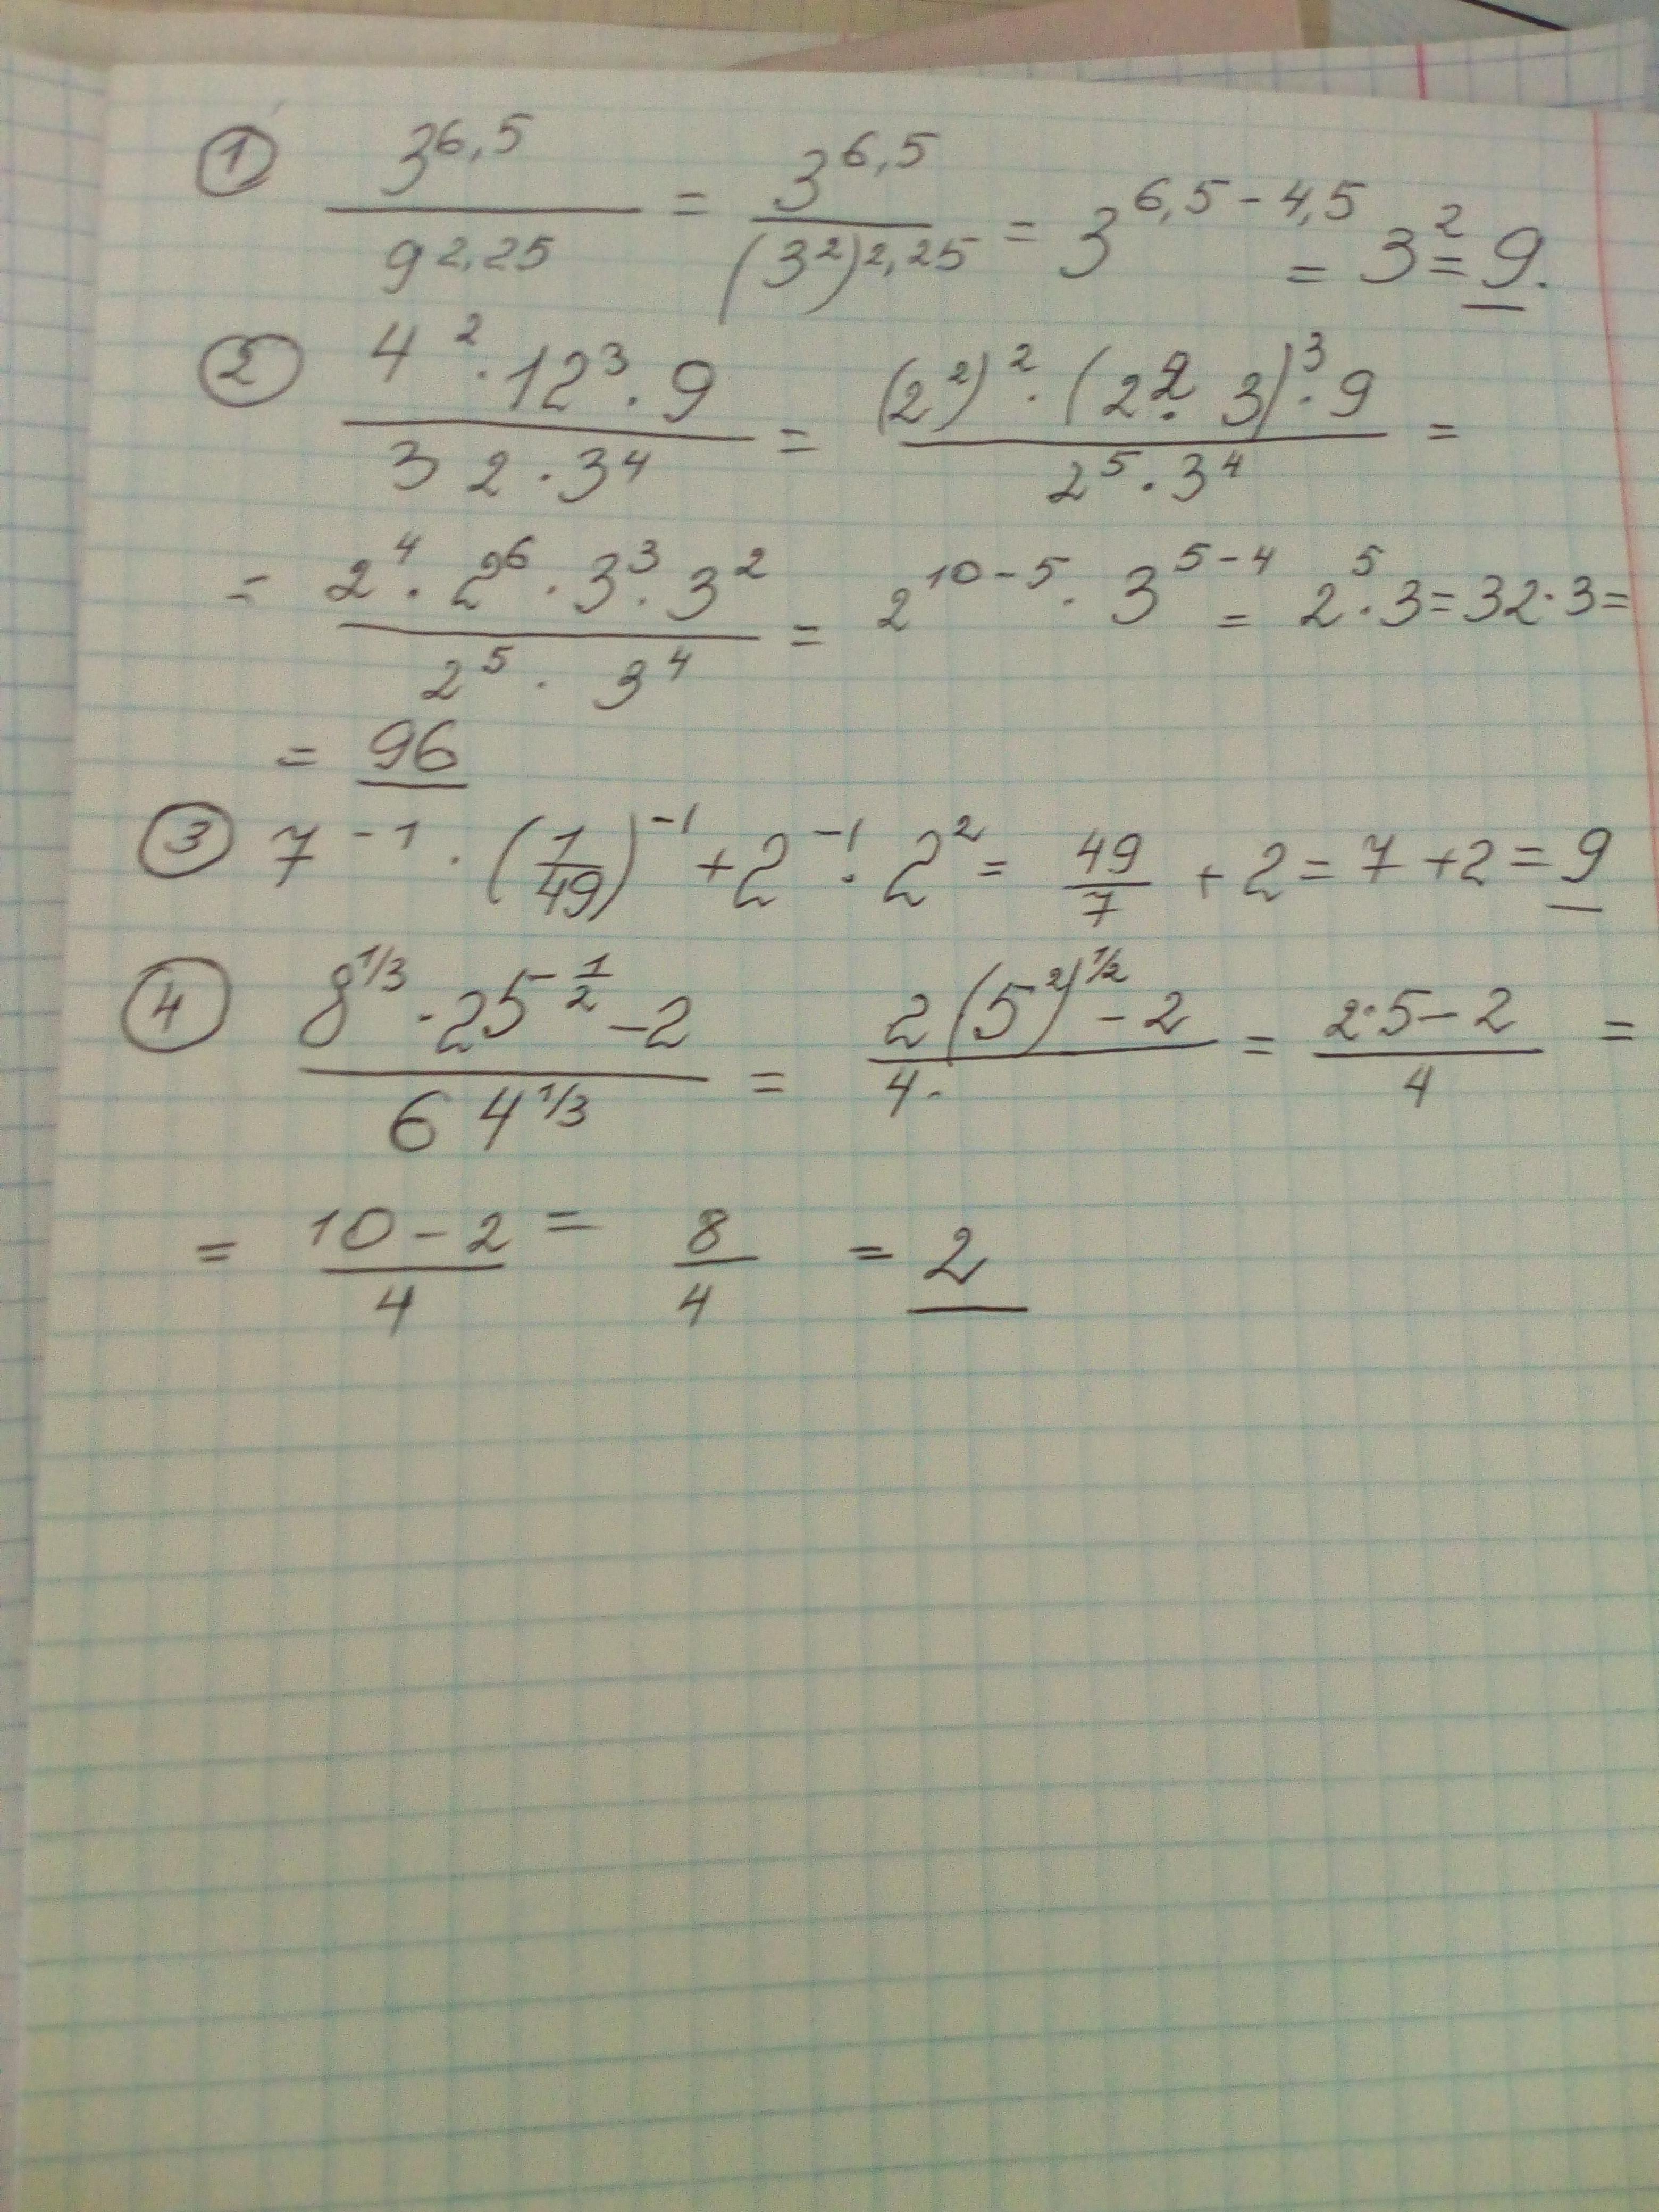 ① 3^6,5 / 9^2,25 = 3^6,5 / (3^2)^2,25 = 3^6,5-4,5 = 3^2 = 9.
② 4^2 · 12^3 · 9 / 32 · 3^4 = (2^2)^2 · (2^2 · 3)^3 · 9 / 2^5 · 3^4 =
= 2^4 · 2^6 · 3^3 · 3^2 / 2^5 · 3^4 = 2^10-5 · 3^5-4 = 2^5 · 3 = 32 · 3 =
= 96
③ 7^-1 · (1/49)^-1 + 2^-1 · 2^2 = 49/7 + 2 = 7 + 2 = 9
④ 8^1/3 · 25^-1/2 - 2 / 64^1/3 = 2(5^2)^1/2 - 2 / 4. = 2·5 - 2 / 4 =
= 10 - 2 / 4 = 8/4 = 2